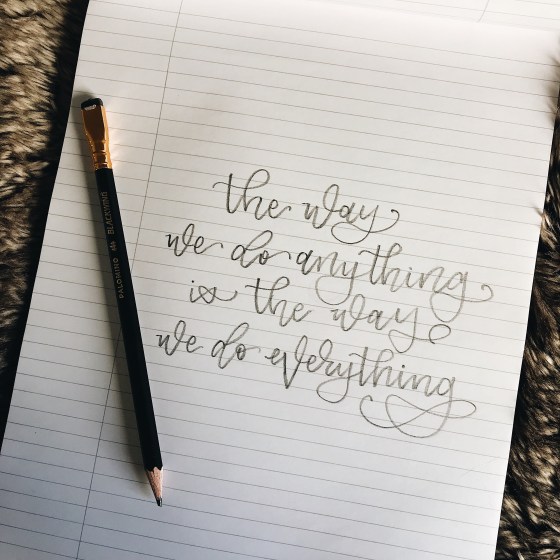 the way
we do anything
is the way
we do everything
PALOMINO BLACKWING